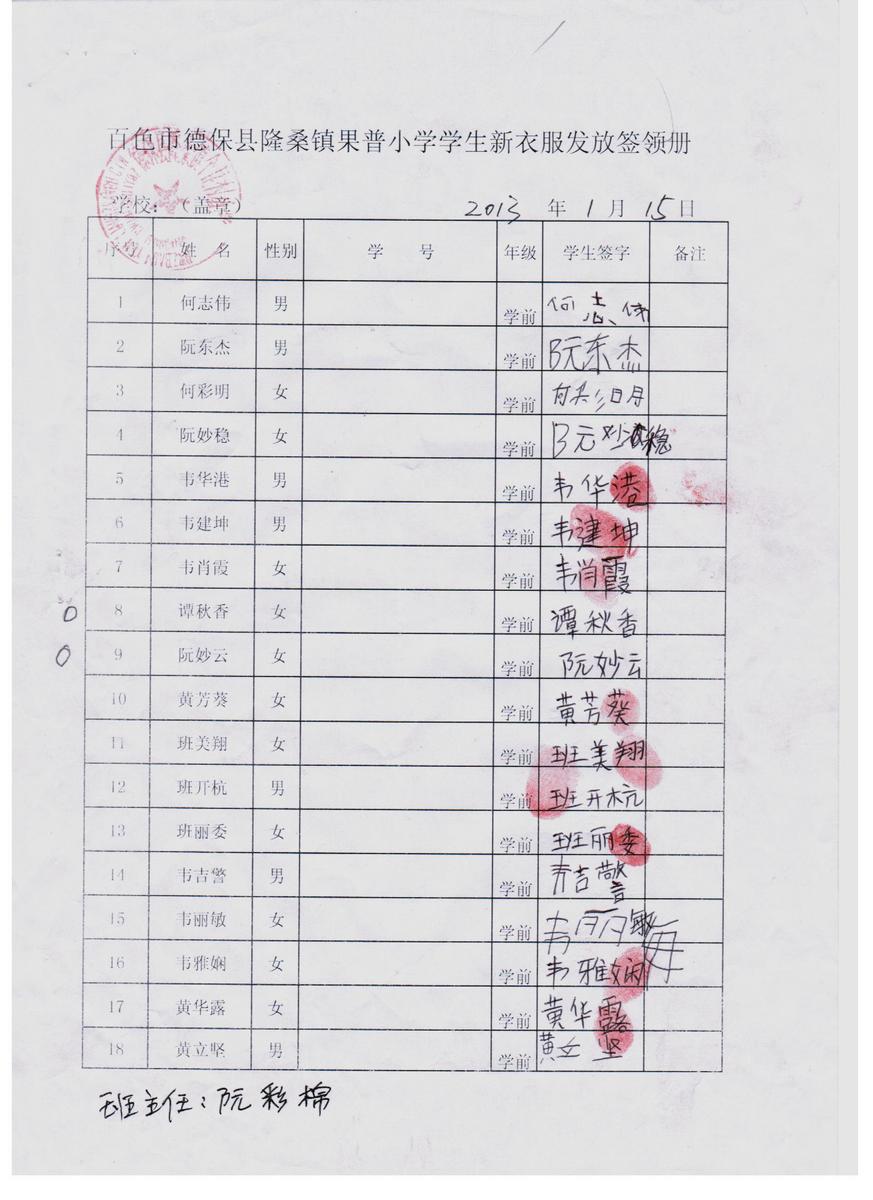 百色市德保县隆桑镇果普小学学生新衣服发放签领册
学校：（盖章） 2013 年 1 月 15 日
序号 姓 名 性别 学 号 年级 学生签字 备注
1 何志伟 男 学前 何志伟
2 阮东杰 男 学前 阮东杰
3 何彩明 女 学前 何彩明
4 阮妙稳 女 学前 阮妙稳
5 韦华港 男 学前 韦华港
6 韦建坤 男 学前 韦建坤
7 韦肖霞 女 学前 韦肖霞
0 8 谭秋香 女 学前 谭秋香
0 9 阮妙云 女 学前 阮妙云
10 黄芳葵 女 学前 黄芳葵
11 班美翔 女 学前 班美翔
12 班开杭 男 学前 班开杭
13 班丽委 女 学前 班丽委
14 韦吉警 男 学前 韦吉警
15 韦丽敏 女 学前 韦丽敏
16 韦雅娴 女 学前 韦雅娴
17 黄华露 女 学前 黄华露
18 黄立坚 男 学前 黄立坚
班主任：阮彩棉